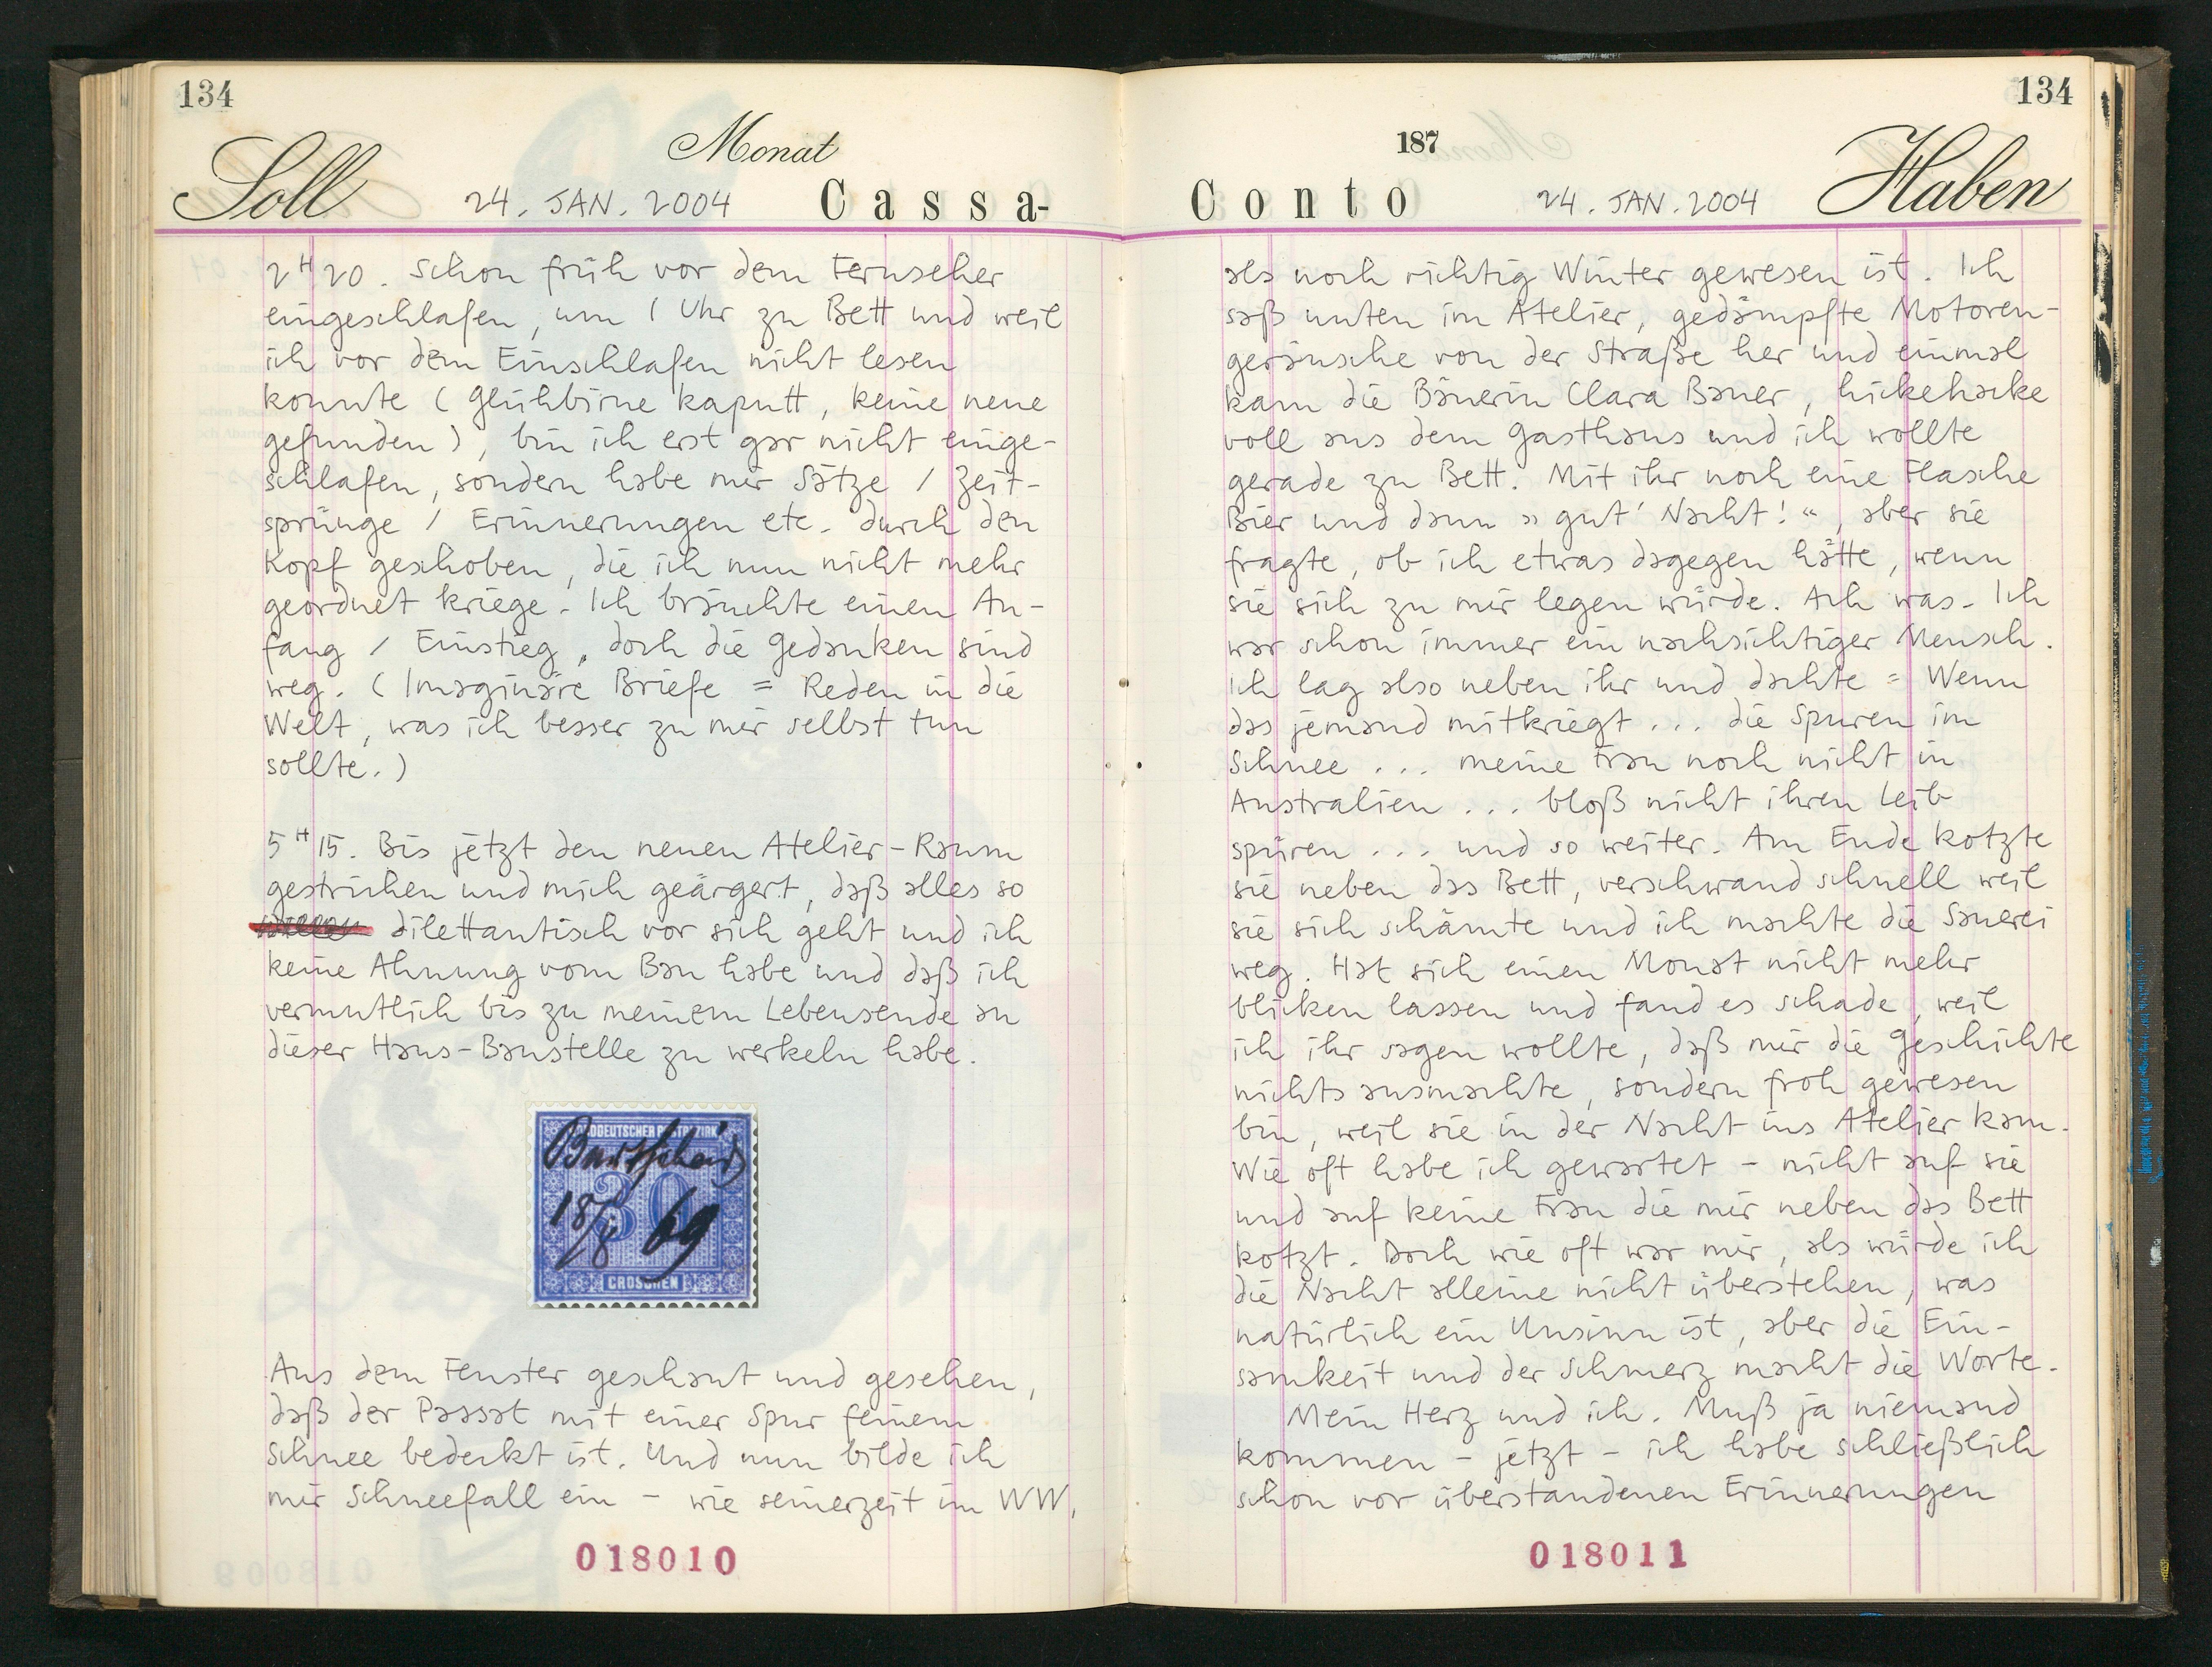 134
Soll
Monat
24. JAN. 2004
Cassa-
2H20. Schon früh vor dem Fernseher
eingeschlafen, um 1 Uhr zu Bett und weil
ich vor dem Einschlafen nicht lesen
konnte (Glühbirne kaputt, keine neue
gefunden), bin ich erst gar nicht einge-
schlafen, sondern habe mir Sätze / Zeit-
sprünge / Erinnerungen etc. durch den
Kopf geschoben, die ich nun nicht mehr
geordnet kriege. Ich bräuchte einen An-
fang / Einstieg, doch die Gedanken sind
weg. (Imaginäre Briefe = Reden in die
Welt, was ich besser zu mir selbst tun
sollte.)
5H15. Bis jetzt den neuen Atelier-Raum
gestrichen und mich geärgert, daß alles so
dilettantisch vor sich geht und ich
keine Ahnung vom Bau habe und daß ich
vermutlich bis zu meinem Lebensende an
dieser Haus-Baustelle zu werkeln habe.
NORDDEUTSCHER POSTBEZIRK
30
18/8 69
GROSCHEN
Aus dem Fenster geschaut und gesehen,
daß der Passat mit einer Spur feinem
Schnee bedeckt ist. Und nun bilde ich
mir Schneefall ein – wie seinerzeit im WW,
018010
134
187
Conto
24. JAN. 2004
Haben
als noch richtig Winter gewesen ist. Ich
saß unten im Atelier, gedämpfte Motoren-
geräusche von der Straße her und einmal
kam die Bäuerin Clara Bauer, hickehacke
voll aus dem Gasthaus und ich wollte
gerade zu Bett. Mit ihr noch eine Flasche
Bier und dann »gut' Nacht!«, aber sie
fragte, ob ich etwas dagegen hätte, wenn
sie sich zu mir legen würde. Ach was. Ich
war schon immer ein nachsichtiger Mensch.
Ich lag also neben ihr und dachte = Wenn
das jemand mitkriegt ... die Spuren im
Schnee ... meine Frau noch nicht in
Australien ... bloß nicht ihren Leib
spüren ... und so weiter. Am Ende kotzte
sie neben das Bett, verschwand schnell weil
sie sich schämte und ich machte die Sauerei
weg. Hat sich einen Monat nicht mehr
blicken lassen und fand es schade, weil
ich ihr sagen wollte, daß mir die Geschichte
nichts ausmachte, sondern froh gewesen
bin, weil sie in der Nacht ins Atelier kam.
Wie oft habe ich gewartet – nicht auf sie
und auf keine Frau die mir neben das Bett
kotzt. Doch wie oft war mir, als würde ich
die Nacht alleine nicht überstehen, was
natürlich ein Unsinn ist, aber die Ein-
samkeit und der Schmerz macht die Worte.
Mein Herz und ich. Muß ja niemand
kommen – jetzt – ich habe schließlich
schon vor überstandenen Erinnerungen
018011